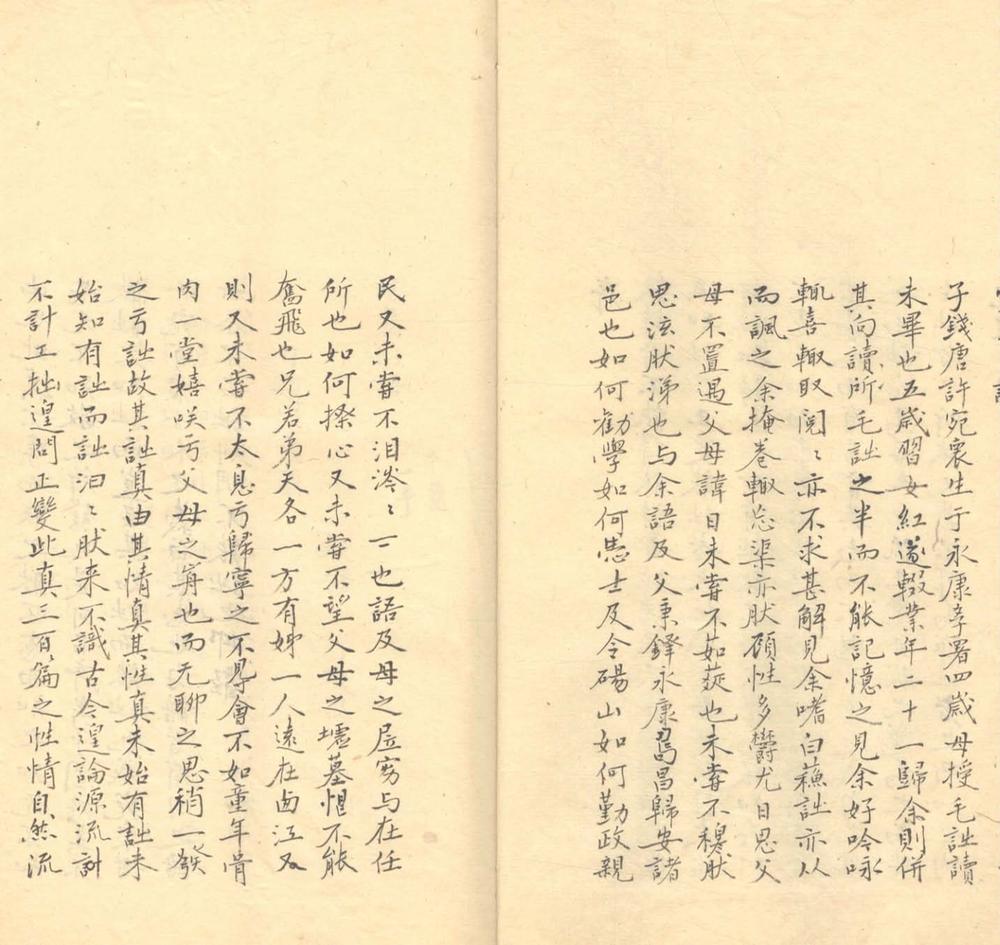 子錢唐許宛褱生于永康孝署四歲母授毛詘讀
未畢也五歲習女紅遂輟業年二十一歸余則併
其向讀所毛詘之半而不能記憶之見余好唫咏
輒喜輙取閲〻亦不求甚解見余嗜白蘓詘亦从
而諷之余掩卷輙忘渠亦肰顧性多鬱尤日思父
母不置遇父母諱日未甞不茹蔬也未甞不穆肰
思泫肰涕也与余語及父秉鐸永康舄昌歸安諸
邑也如何勸學如何造士及令碭山如何勤政親
民又未甞不泪涔〻二也語及母之凥窮与在任
所也如何操心又未甞不望父母之墟墓惟不能
奮飛也兄若弟天各一方有姊一人遠在卥江又
則又未甞不太息亐歸寧之不㝵會不如童年骨
肉一堂嬉咲亐父母之歬也而无聊之思稍一發
之亐詘故其詘真由其情真其性真未始有詘未
始知有詘而詘汩〻肰来不識古今遑論源流計
不計工拙遑問正變此真三百篇之性情自然流